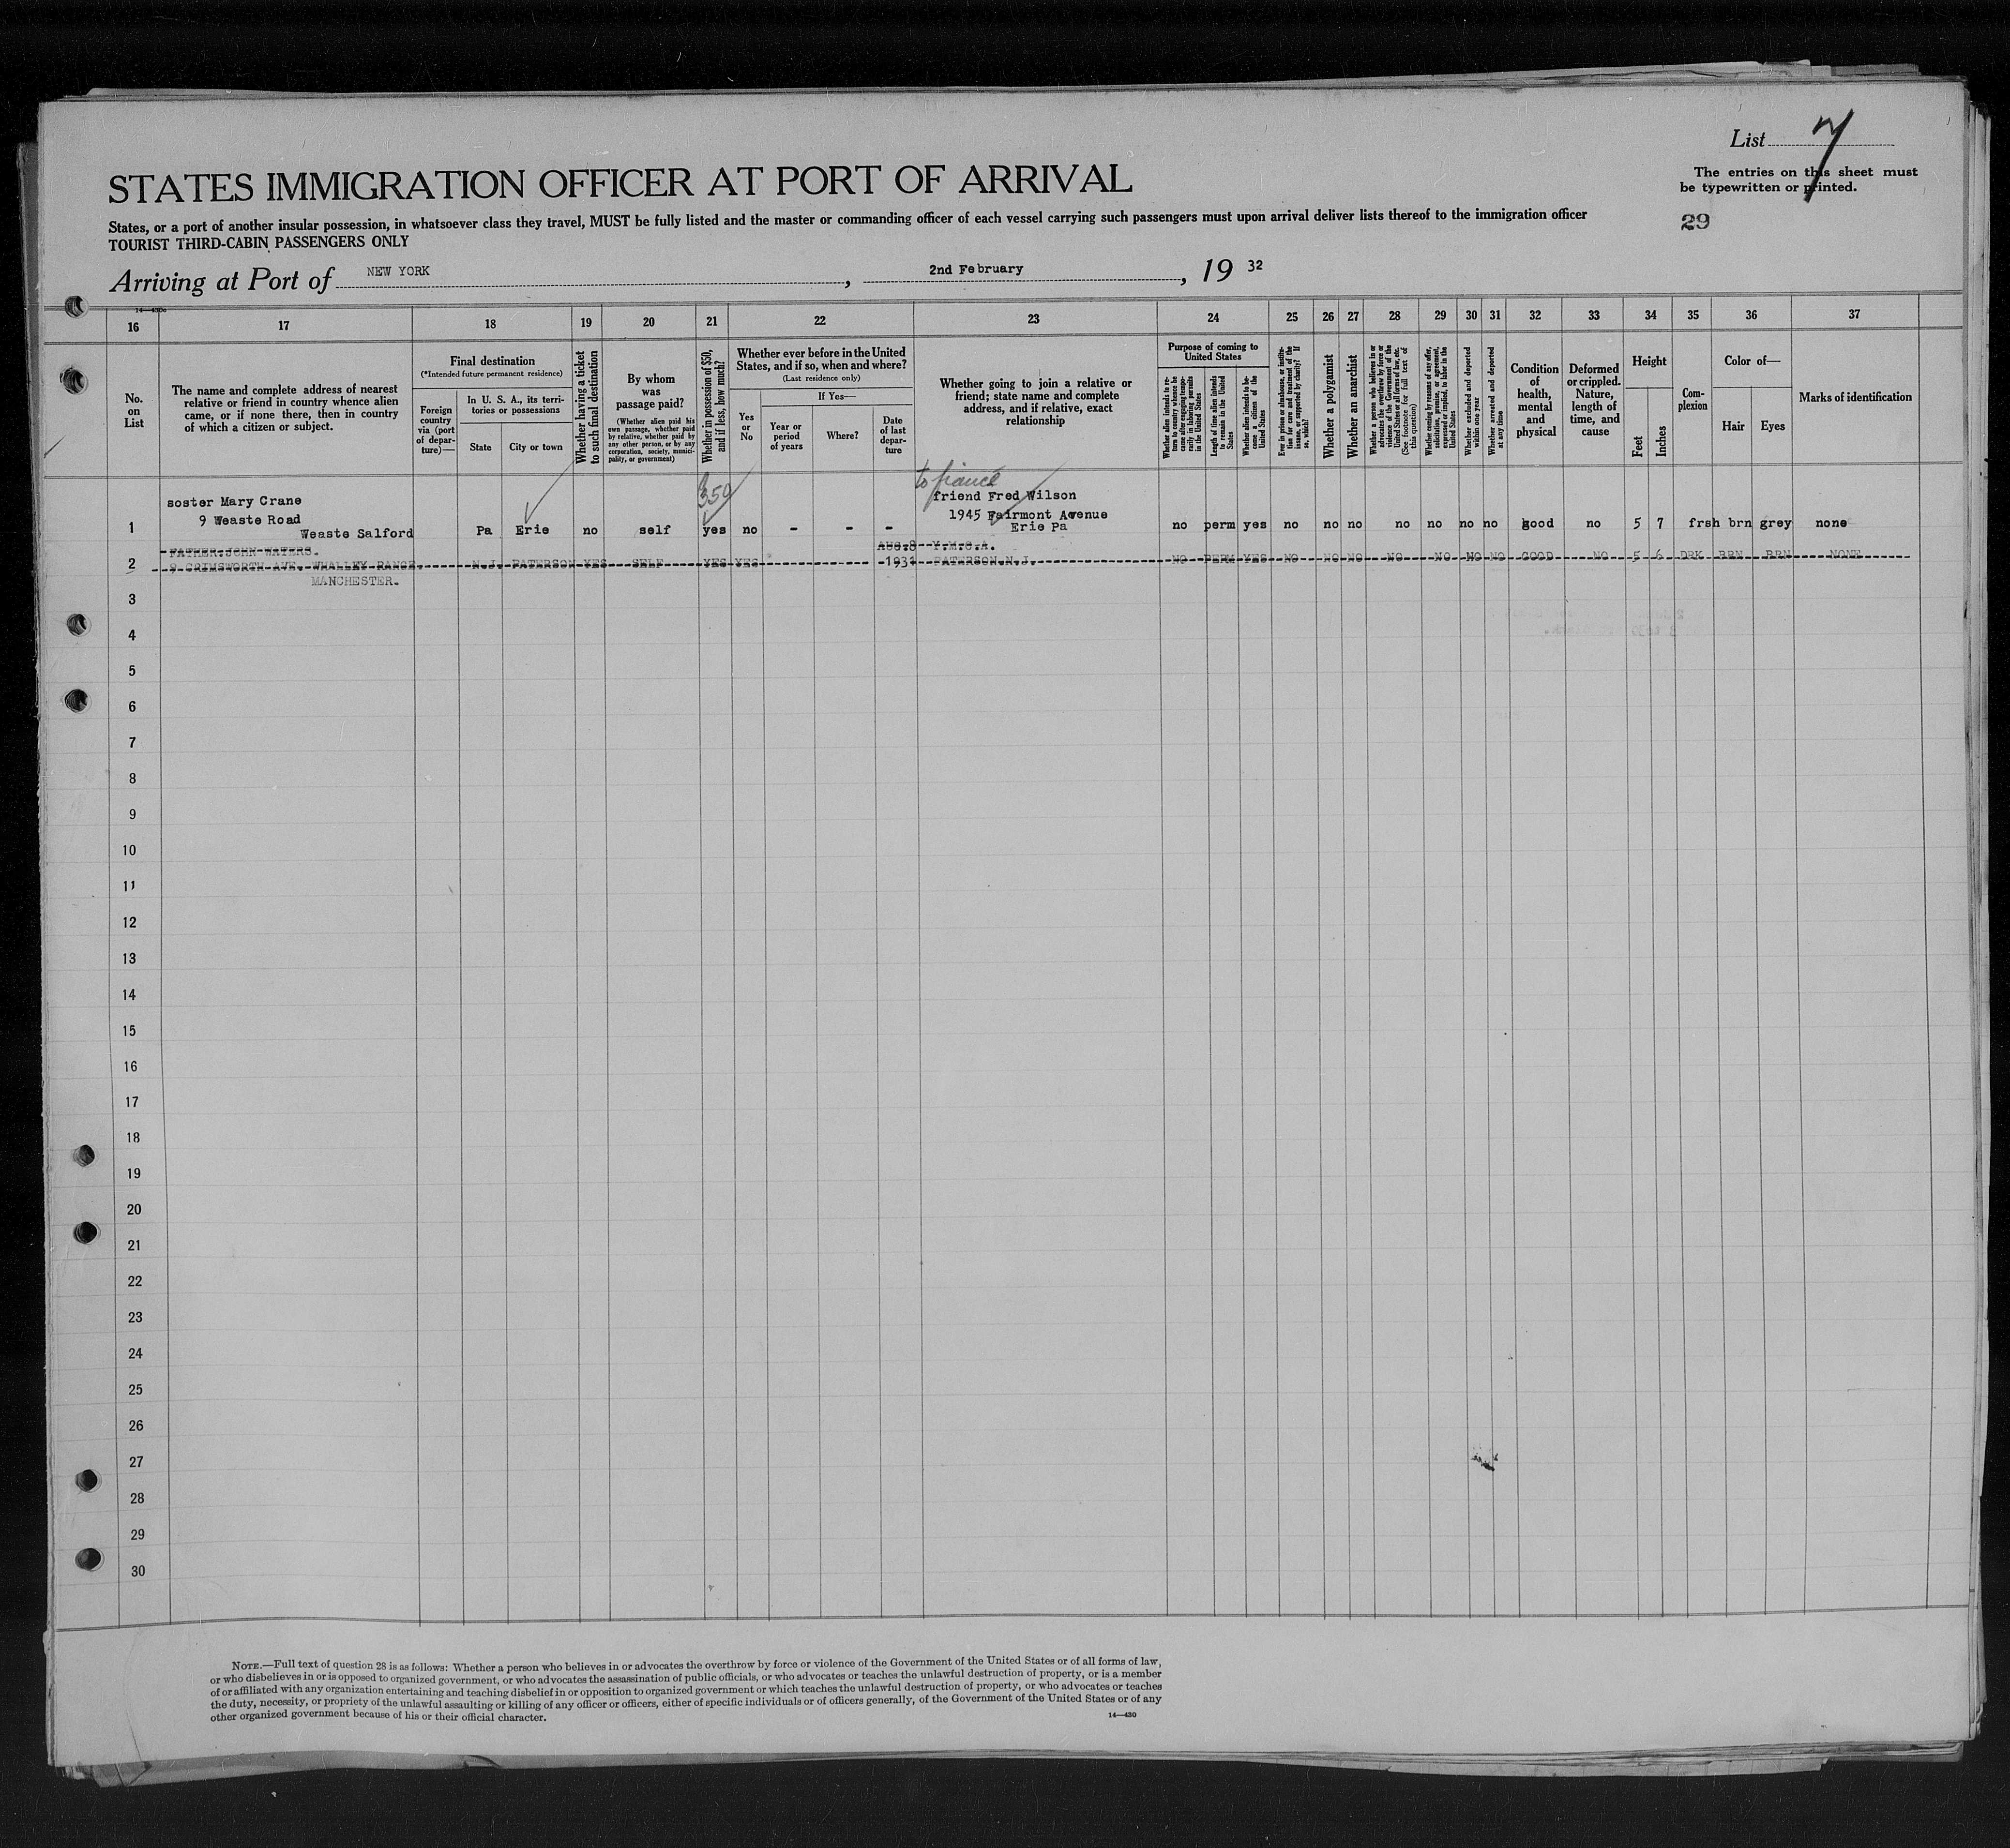 List 7
STATES IMMIGRATION OFFICER AT PORT OF ARRIVAL
The entries on this sheet must
be typewritten or printed.
States, or a port of another insular possession, in whatsoever class they travel, MUST be fully listed and the master or commanding officer of each vessel carrying such passengers must upon arrival deliver lists thereof to the immigration officer
29
TOURIST THIRD-CABIN PASSENGERS ONLY
Arriving at Port of NEW YORK, 2nd February, 19 32
16 17 18 19 20 21 22 23 24 25 26 27 28 29 30 31 32 33 34 35 36 37
No.
on
List
The name and complete address of nearest
relative or friend in country whence alien
came, or if none there, then in country
of which a citizen or subject.
Final destination
(*Intended future permanent residence)
Foreign
country
via (port
of depar-
ture)—
In U. S. A., its terri-
tories or possessions
State
City or town
Whether having a ticket
to such final destination
By whom
was
passage paid?
(Whether alien paid his
own passage, whether paid
by relative, whether paid by
any other person, or by any
corporation, society, munici-
pality, or government)
Whether in possession of $50,
and if less, how much?
Whether ever before in the United
States, and if so, when and where?
(Last residence only)
Yes
or
No
If Yes—
Year or
period
of years
Where?
Date
of last
depar-
ture
Whether going to join a relative or
friend; state name and complete
address, and if relative, exact
relationship
Purpose of coming to
United States
Whether alien intends to re-
turn to country whence he
came after engaging tempo-
rarily in laboring pursuits
in the United States
Length of time alien intends
to remain in the United
States
Whether alien intends to be-
come a citizen of the
United States
Ever in prison or almshouse, or institu-
tion for care and treatment of the
insane, or supported by charity? If
so, which?
Whether a polygamist
Whether an anarchist
Whether a person who believes in or
advocates the overthrow by force or
violence of the Government of the
United States or all forms of law, etc.
(See footnote for full text of
this question)
Whether coming by reason of any offer,
solicitation, promise, or agreement,
expressed or implied, to labor in the
United States
Whether excluded and deported
within one year
Whether arrested and deported
at any time
Condition
of
health,
mental
and
physical
Deformed
or crippled.
Nature,
length of
time, and
cause
Height
Feet
Inches
Com-
plexion
Color of—
Hair
Eyes
Marks of identification
to fiancé
soster Mary Crane 350 friend Fred Wilson
9 Weaste Road 1945 Fairmont Avenue
1 Weaste Salford Pa Erie no self yes no - - - Erie Pa no perm yes no no no no no no no good no 5 7 frsh brn grey none
FATHER.JOHN WATERS. AUG.8 Y.M.C.A.
2 9 GRIMSWORTH AVE. WHALLEY RANGE N.J. PATERSON YES SELF YES YES 1931 PATERSON.N.J. NO PERM YES NO NO NO NO NO NO NO GOOD NO 5 6 DRK BRN BRN NONE
MANCHESTER.
3
4
5
6
7
8
9
10
11
12
13
14
15
16
17
18
19
20
21
22
23
24
25
26
27
28
29
30
NOTE.—Full text of question 28 is as follows: Whether a person who believes in or advocates the overthrow by force or violence of the Government of the United States or of all forms of law,
or who disbelieves in or is opposed to organized government, or who advocates the assassination of public officials, or who advocates or teaches the unlawful destruction of property, or is a member
of or affiliated with any organization entertaining and teaching disbelief in or opposition to organized government or which teaches the unlawful destruction of property, or who advocates or teaches
the duty, necessity, or propriety of the unlawful assaulting or killing of any officer or officers, either of specific individuals or of officers generally, of the Government of the United States or of any
other organized government because of his or their official character.
14—430